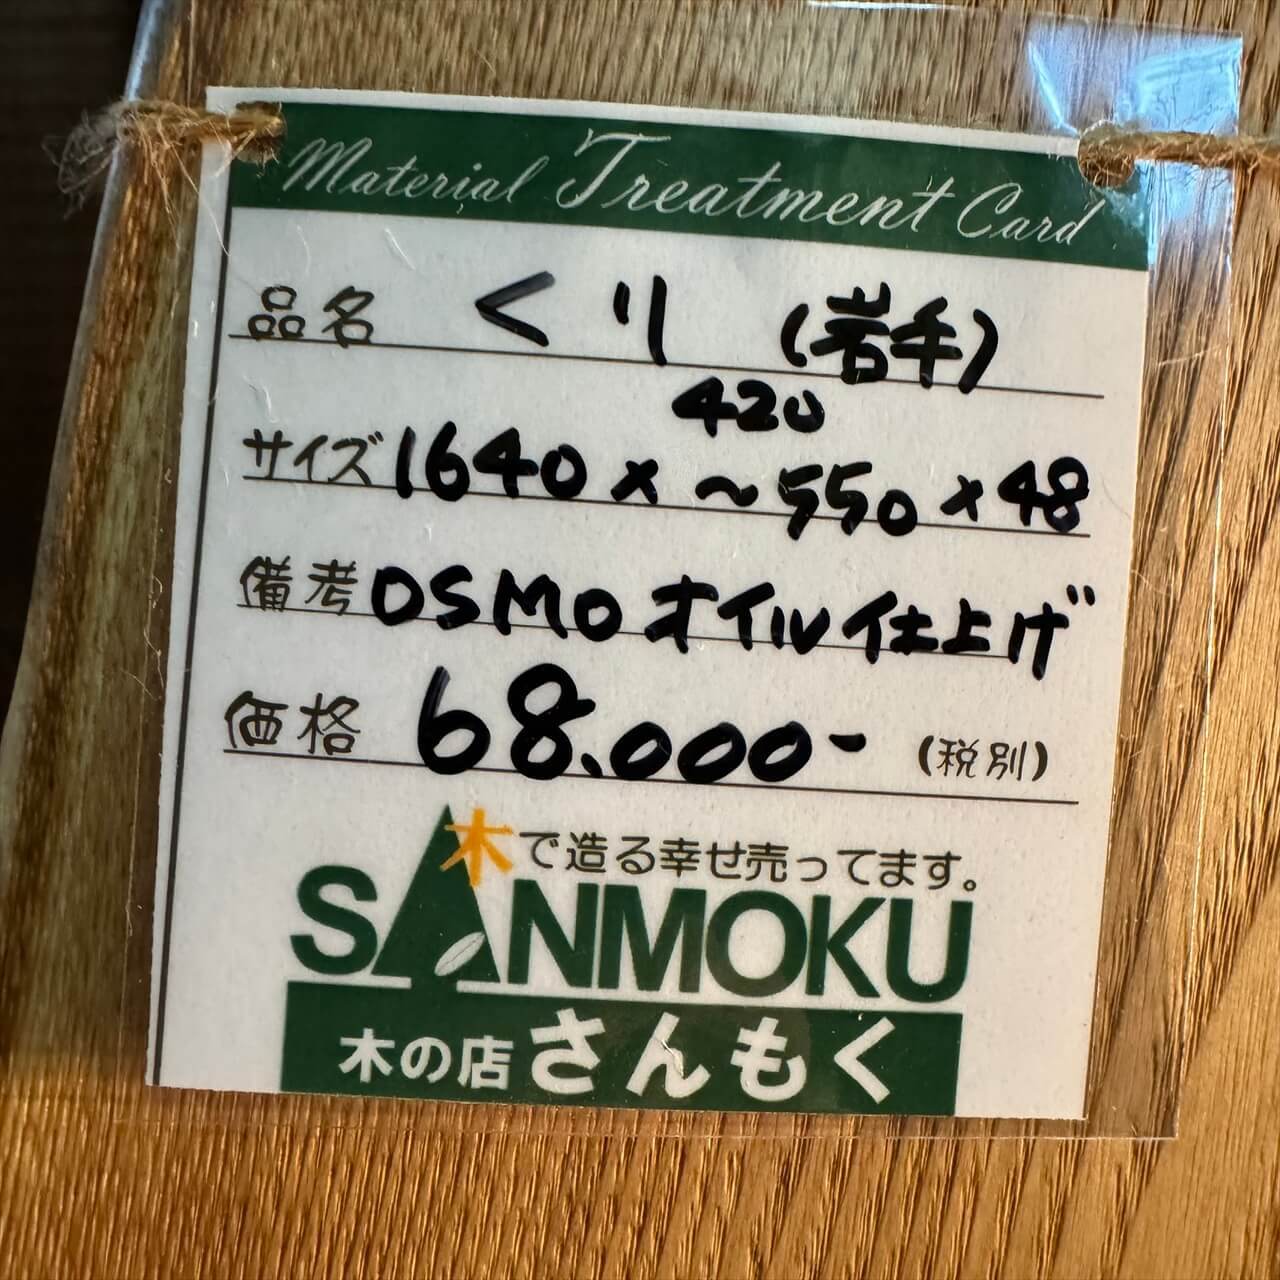 Material Treatment Card
品名 くり (岩手)
420
サイズ 1640 × 〜550 × 48
備考 OSMO オイル仕上げ
価格 68.000- (税別)
木で造る幸せ売ってます。
SANMOKU
木の店 さんもく